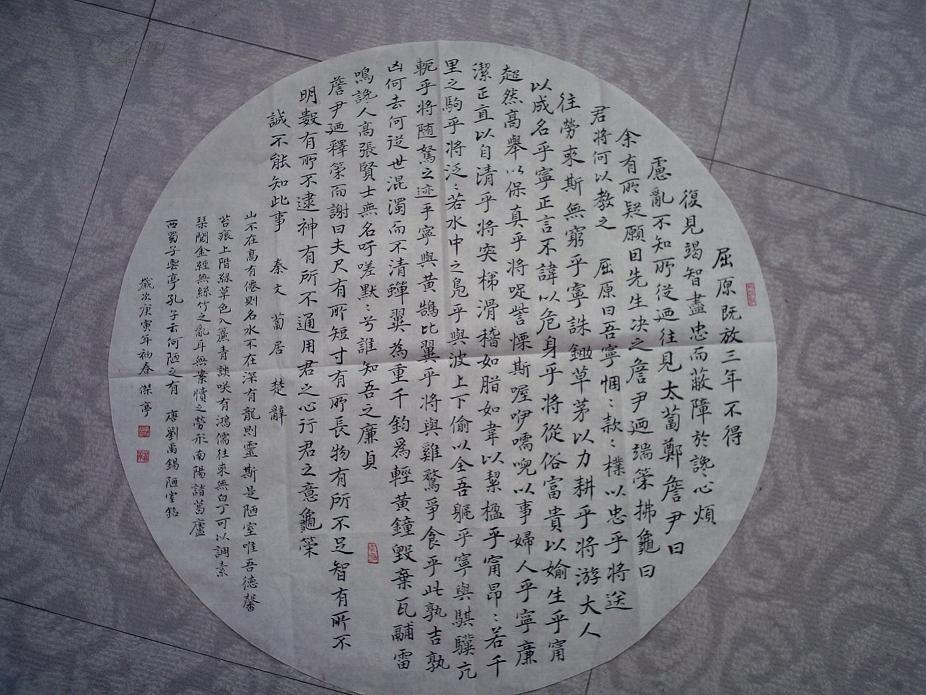 屈原既放三年不得
復見竭智盡忠而蔽障於讒心煩
慮亂不知所從廼往見太蔔鄭詹尹曰
余有所疑願因先生決之詹尹廼端筞拂龜曰
君將何以教之 屈原曰吾寧悃:款:樸以忠乎將送
往勞來斯無窮乎寧誅鋤草茅以力耕乎將游大人
以成名乎寧正言不諱以危身乎將從俗富貴以媮生乎甯
超然高舉以保真乎將哫訾慄斯喔伊嚅唲以事婦人乎寧廉
潔正直以自清乎將突梯滑稽如脂如韋以絜楹乎甯昂:若千
里之駒乎將泛:若水中之鳧乎與波上下偷以全吾軀乎寧與騏驥亢
軛乎將随駑之迹乎寧與黃鵠比翼乎將與雞鶩爭食乎此孰吉孰
凶何去何從世混濁而不清蟬翼為重千鈞為輕黃鐘毀棄瓦鬴雷
鳴讒人高張賢士無名吁嗟默:兮誰知吾之廉貞
詹尹廼釋筞而謝曰夫尺有所短寸有所長物有所不足智有所不
明數有所不逮神有所不通用君之心行君之意龜筞
誠不能知此事 秦文 蔔居 楚辭
山不在高有僊則名水不在深有龍則靈斯是陋室唯吾德馨
苔痕上階綠草色入簾青談咲有鴻儒往來無白丁可以調素
琹閱金經無絲竹之亂耳無案牘之勞形南陽諸葛廬
西蜀子雲亭孔子云何陋之有 唐劉禹錫陋室銘
歲次庚寅年初春 傑亭